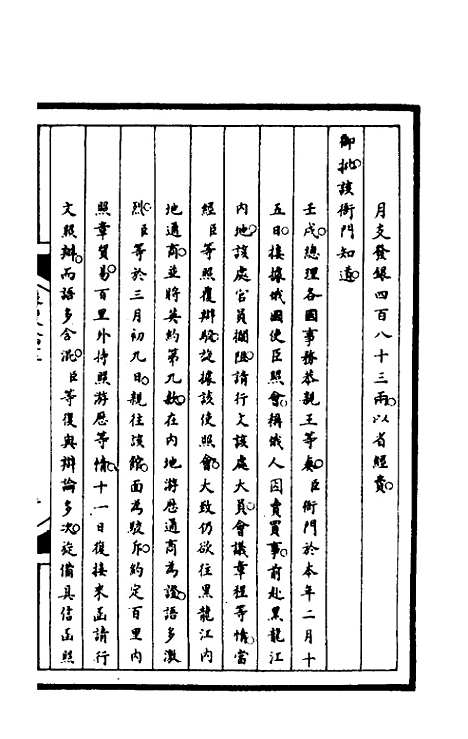 月支發銀四百八十三兩以省經費
御批該衙門知道
壬戌總理各國事務恭親王等奏臣衙門於本年二月十
五日接據俄國使臣照會稱俄人因賣買事前赴黑龍江
內地該處官員攔阻請行文該處大員會議章程等情當
經臣等照覆辯駁旋據該使照會大致仍欲往黑龍江內
地通商並將英約第九款在內地游歷通商為證語多激
烈臣等於三月初九日親往該館面為駁斥約定百里內
照章貿易百里外持照游歷等情十一日復接來函請行
文照辦而語多含混臣等復與辯論多次旋備具信函照